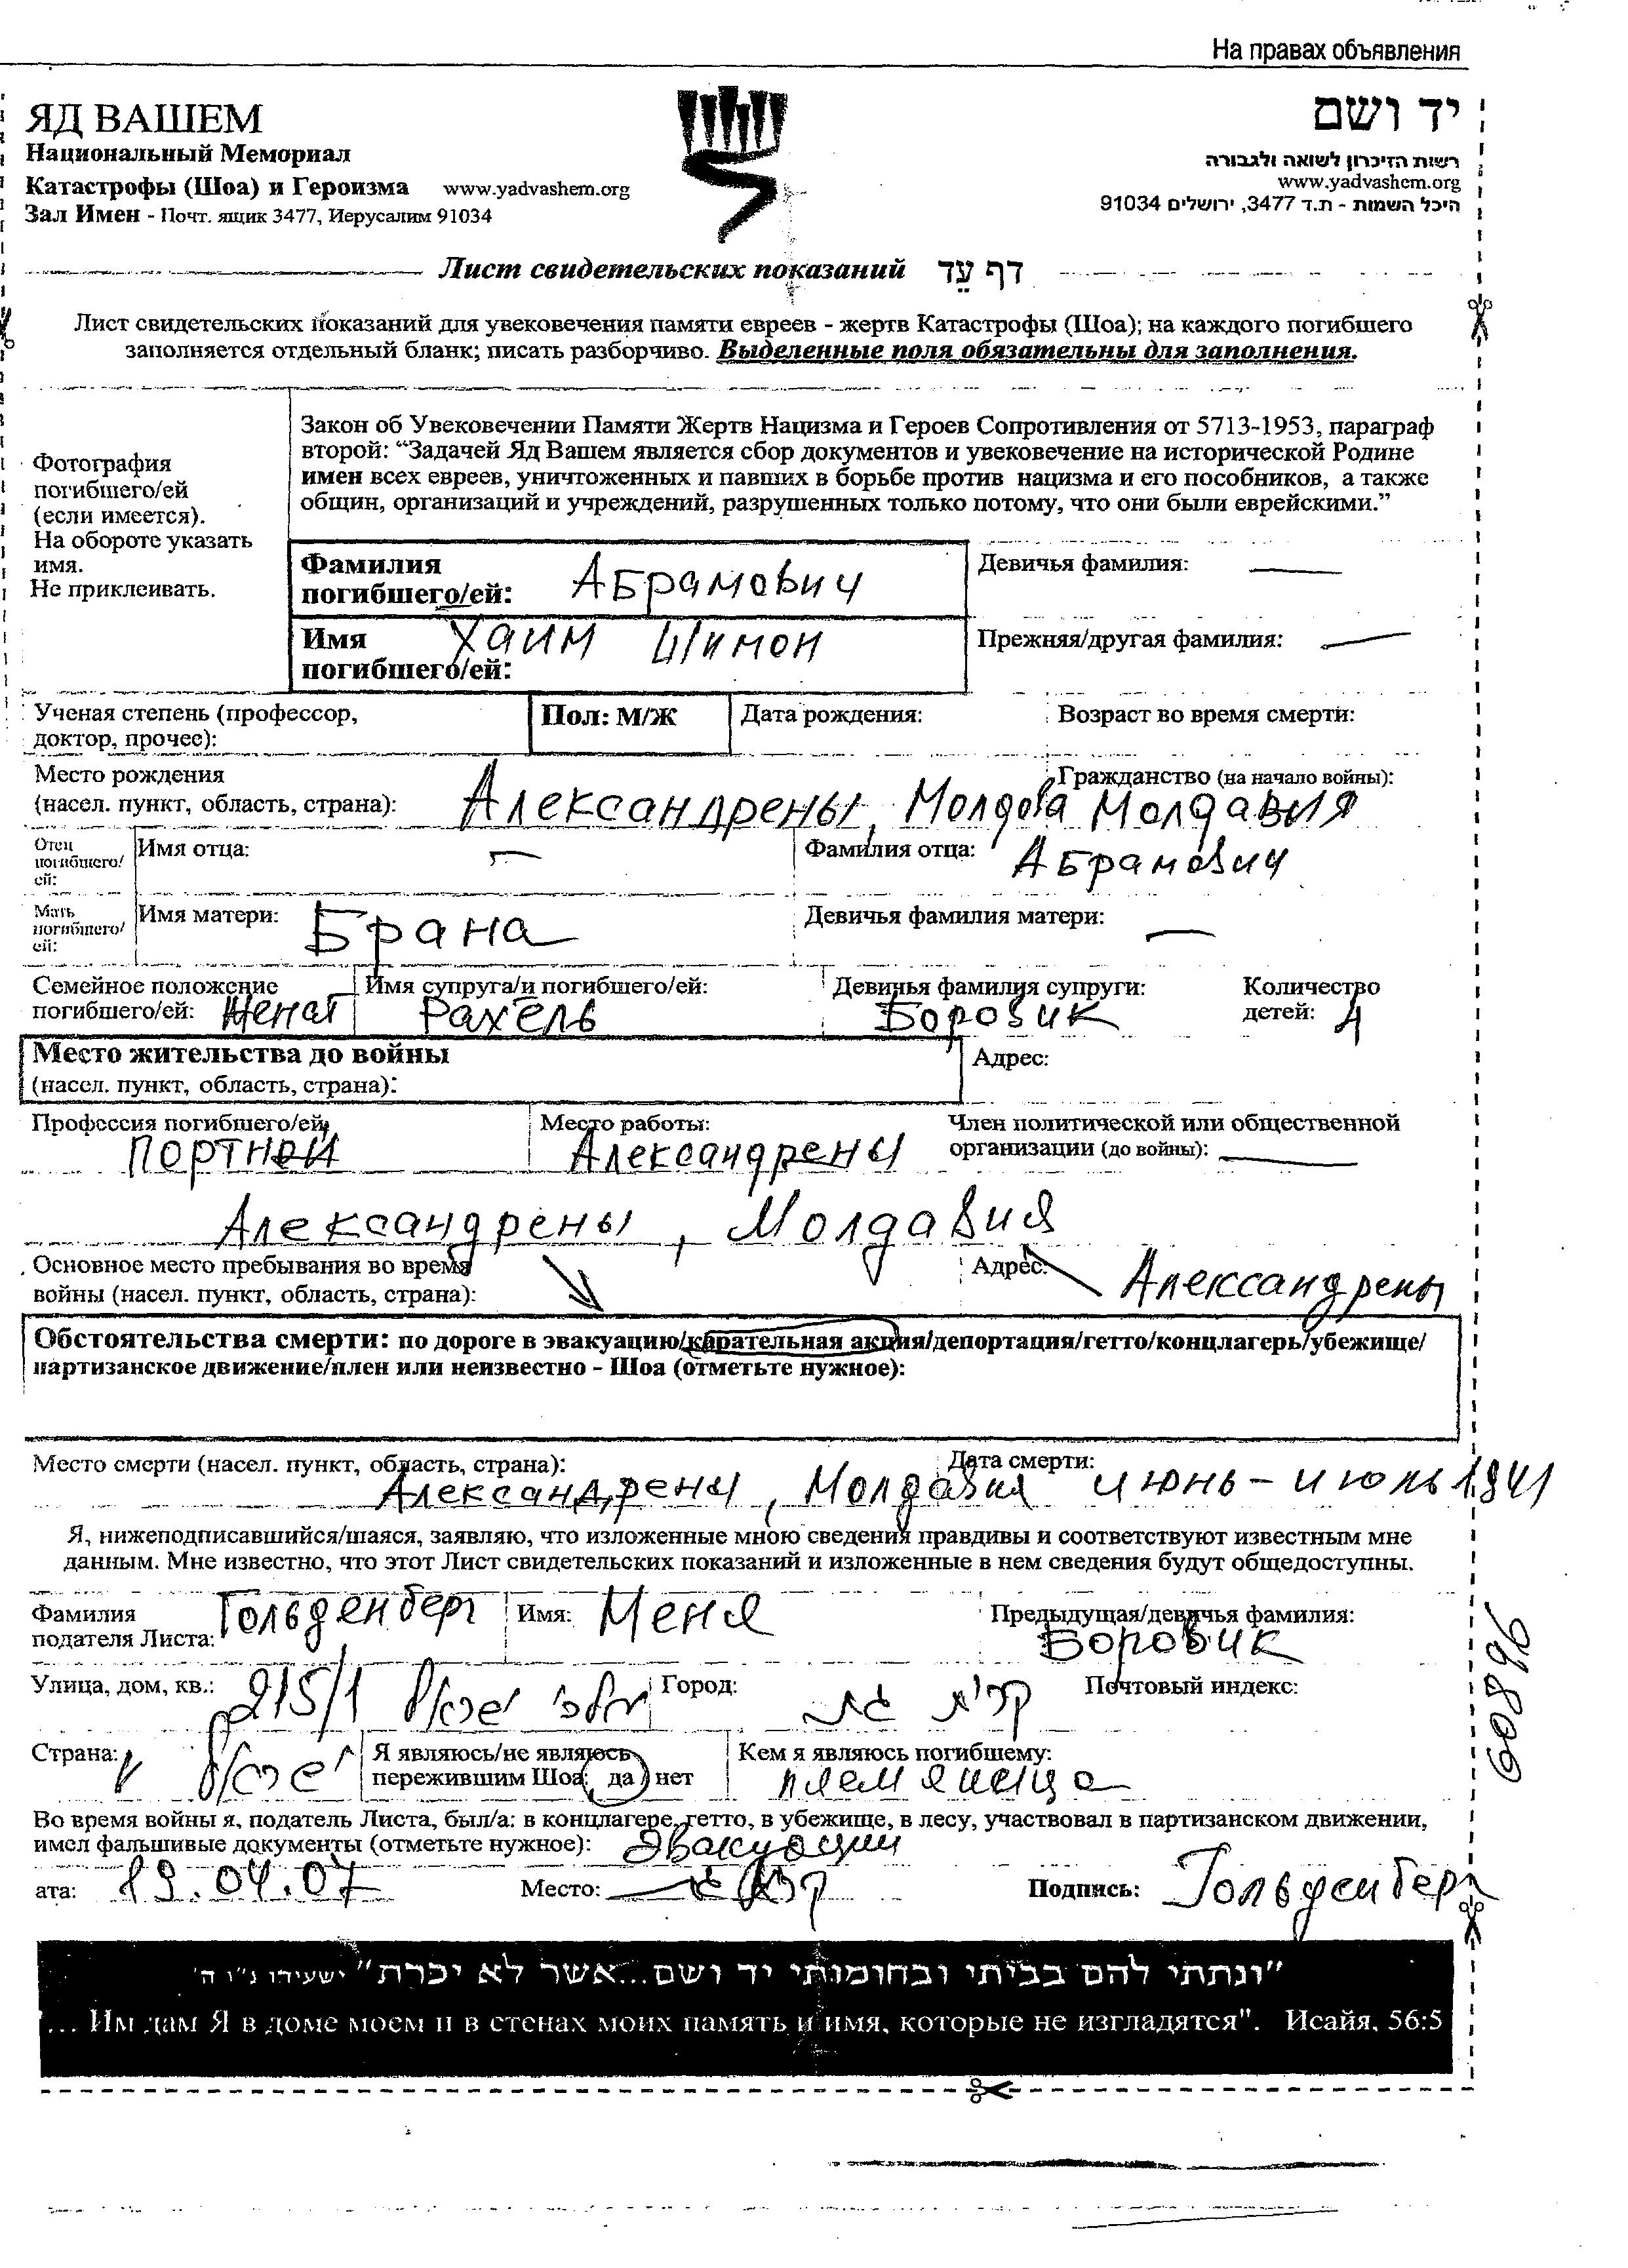 На правах объявления
ЯД ВАШЕМ
Национальный Мемориал
Катастрофы (Шоа) и Героизма www.yadvashem.org
Зал Имен - Почт. ящик 3477, Иерусалим 91034
יד ושם
רשות הזיכרון לשואה ולגבורה
www.yadvashem.org
היכל השמות - ת.ד 3477, ירושלים 91034
Лист свидетельских показаний דף עֵד
Лист свидетельских показаний для увековечения памяти евреев - жертв Катастрофы (Шоа); на каждого погибшего
заполняется отдельный бланк; писать разборчиво. Выделенные поля обязательны для заполнения.
Фотография
погибшего/ей
(если имеется).
На обороте указать
имя.
Не приклеивать.
Закон об Увековечении Памяти Жертв Нацизма и Героев Сопротивления от 5713-1953, параграф
второй: “Задачей Яд Вашем является сбор документов и увековечение на исторической Родине
имен всех евреев, уничтоженных и павших в борьбе против нацизма и его пособников, а также
общин, организаций и учреждений, разрушенных только потому, что они были еврейскими.”
Фамилия
погибшего/ей: Абрамович
Девичья фамилия: —
Имя Хаим Шимон
погибшего/ей:
Прежняя/другая фамилия: —
Ученая степень (профессор,
доктор, прочес):
Пол: М/Ж
Дата рождения:
Возраст во время смерти:
Место рождения
(насел. пункт, область, страна): Александрены, Молдова
Гражданство (на начало войны):
Молдавия
Отец
погибшего/
ей:
Имя отца: —
Фамилия отца: Абрамович
Мать
погибшего/
ей:
Имя матери: Брана
Девичья фамилия матери: —
Семейное положение
погибшего/ей: Женат
Имя супруга/и погибшего/ей:
Рахель
Девичья фамилия супруги:
Боровик
Количество
детей: 4
Место жительства до войны
(насел. пункт, область, страна):
Адрес:
Профоссия погибшего/ей
Портной
Место работы:
Александрены
Член политической или общественной
организации (до войны): —
Александрены, Молдавия
Основное место пребывания во время
войны (насел. пункт, область, страна):
Адрес: Александрены
Обстоятельства смерти: по дороге в эвакуацию/карательная акция/депортация/гетто/концлагерь/убежище/
партизанское движение/плен или неизвестно - Шоа (отметьте нужное):
Место смерти (насел. пункт, область, страна):
Александрены, Молдавия
Дата смерти:
июнь – июль 1941
Я, нижеподписавшийся/шаяся, заявляю, что изложенные мною сведения правдивы и соответствуют известным мне
данным. Мне известно, что этот Лист свидетельских показаний и изложенные в нем сведения будут общедоступны.
Фамилия
подателя Листа: Гольденберг
Имя: Меня
Предыдущая/девичья фамилия:
Боровик
Улица, дом, кв.: 215/1
Город: קרית גת
Почтовый индекс:
Страна: ישראל
Я являюсь/не являюсь
пережившим Шоа: да/нет
Кем я являюсь погибшему:
племянница
Во время войны я, податель Листа, был/а: в концлагере, гетто, в убежище, в лесу, участвовал в партизанском движении,
имел фальшивые документы (отметьте нужное): Эвакуации
ата: 19.04.07
Место: קרית גת
Подпись: Гольденберг
60896
"ונתתי להם בביתי ובחומותי יד ושם...אשר לא יכרת" ישעיהו נ"ו ה'
"... Им дам Я в доме моем и в стенах моих память и имя, которые не изгладятся". Исайя, 56:5